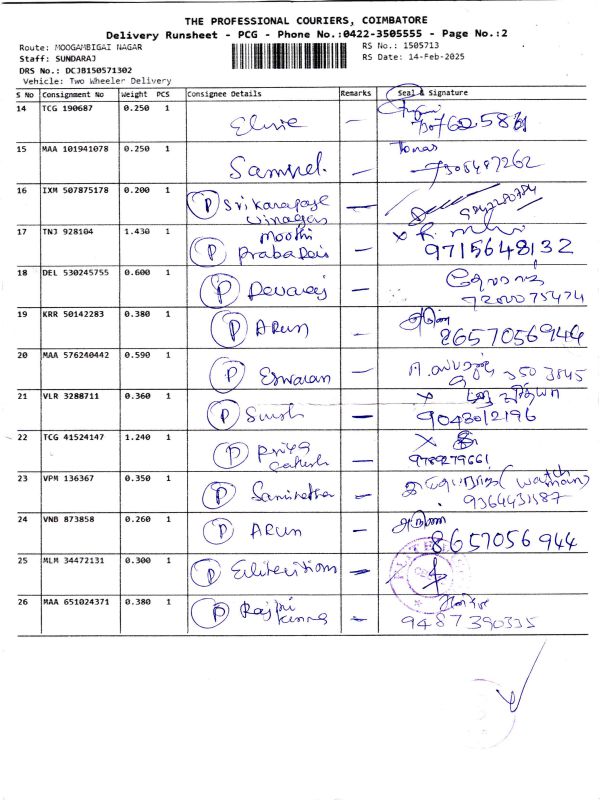 THE PROFESSIONAL COURIERS, COIMBATORE
Delivery Runsheet - PCG - Phone No.:0422-3505555 - Page No.:2
Route: MOOGAMBIGAI NAGAR
RS No.: 1505713
Staff: SUNDARAJ
RS Date: 14-Feb-2025
DRS No.: DCJB150571302
Vehicle: Two Wheeler Delivery
S No Consignment No Weight PCS Consignee Details Remarks Seal & Signature
14 TCG 190687 0.250 1 Elisie –
15 MAA 101941078 0.250 1 Samuel. – Tomas
7305497262
16 IXM 507875178 0.200 1 P Sri Karapaga –
Vinagar
17 TNJ 928104 1.430 1 P Moothi – X
Praba Devi 9715648132
18 DEL 530245755 0.600 1 P Devaraj – தேவராஜ்
7200075474
19 KRR 50142283 0.380 1 P ARUN – அருண்
8657056944
20 MAA 576240442 0.590 1 P Eswaran –
21 VLR 3288711 0.360 1 P Sumsh – X
9043012196
22 TCG 41524147 1.240 1 P Priya – X
9789279661
23 VPM 136367 0.350 1 P – (watch
man)
9364431587
24 VNB 873858 0.260 1 P ARUN – அருண்
8657056944
25 MLM 34472131 0.300 1 P –
26 MAA 651024371 0.380 1 P Rajpri –
9487390335